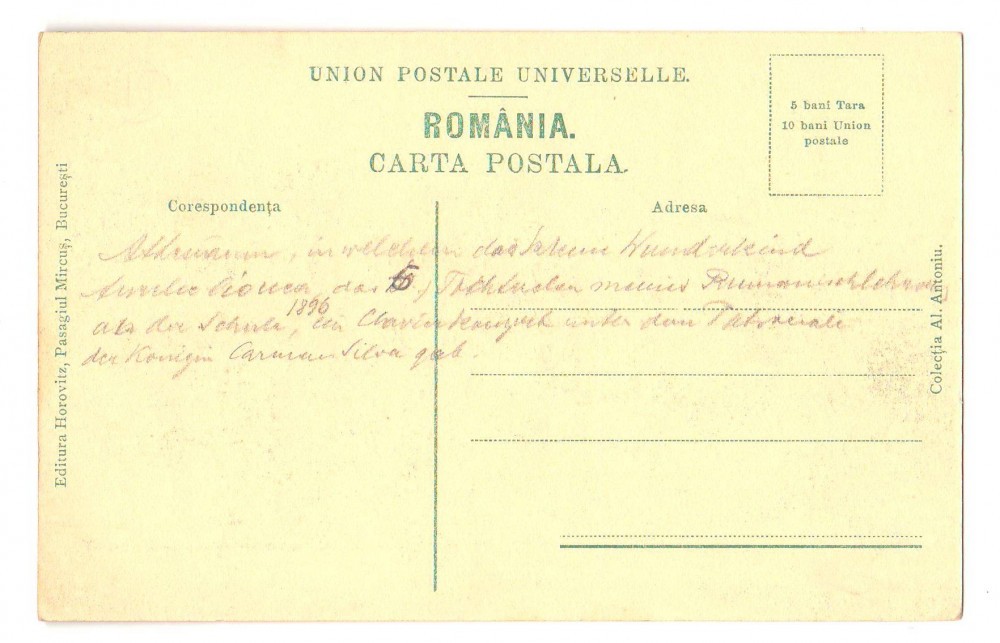 UNION POSTALE UNIVERSELLE.
ROMÂNIA.
CARTA POSTALA.
5 bani Tara
10 bani Union
postale
Corespondența
Adresa
Athenaeum, in welchem das kleine Wunderkind
Aurelie Cionca, das 6 j Töchterlein meines
als der Schule, 1896 ein unter dem
der Königin Carmen Silva gab.
Editura Horovitz, Pasagiul Mircuș, București
Colecția Al. Antoniu.